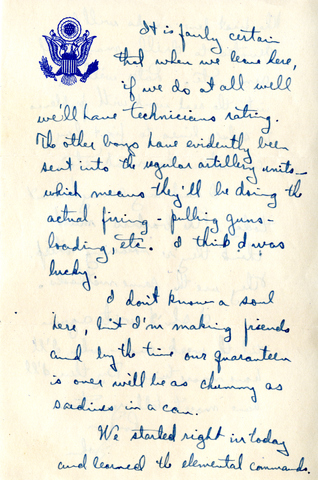 It is fairly certain
that when we leave here,
if we do at all well
we'll have technicians rating.
The other boys have evidently been
sent into the regular artillery units -
which means they'll be doing the
actual firing - pulling guns -
loading, etc. I think I was
lucky.
I don't know a soul
here, but I'm making friends
and by the time our quaranteen
is over will be as chummy as
sardines in a can.
We started right in today
and learned the elemental commands.